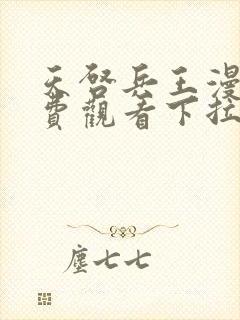 天啓兵王漫
費觀看下拉
塵七七